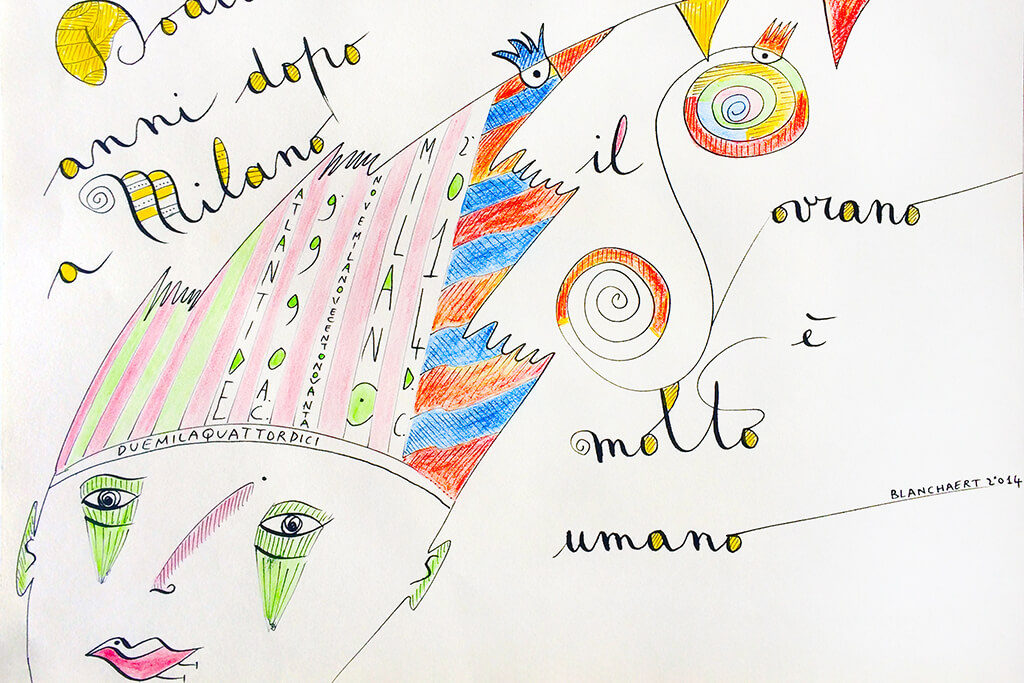 anni dopo
a Milano
il Sovrano
è
molto
umano
ATLANTIDE
9990 A.C.
NOVEMILANOVECENTONOVANTA
MILANO
2014 D.C.
DUEMILAQUATTORDICI
BLANCHAERT 2014